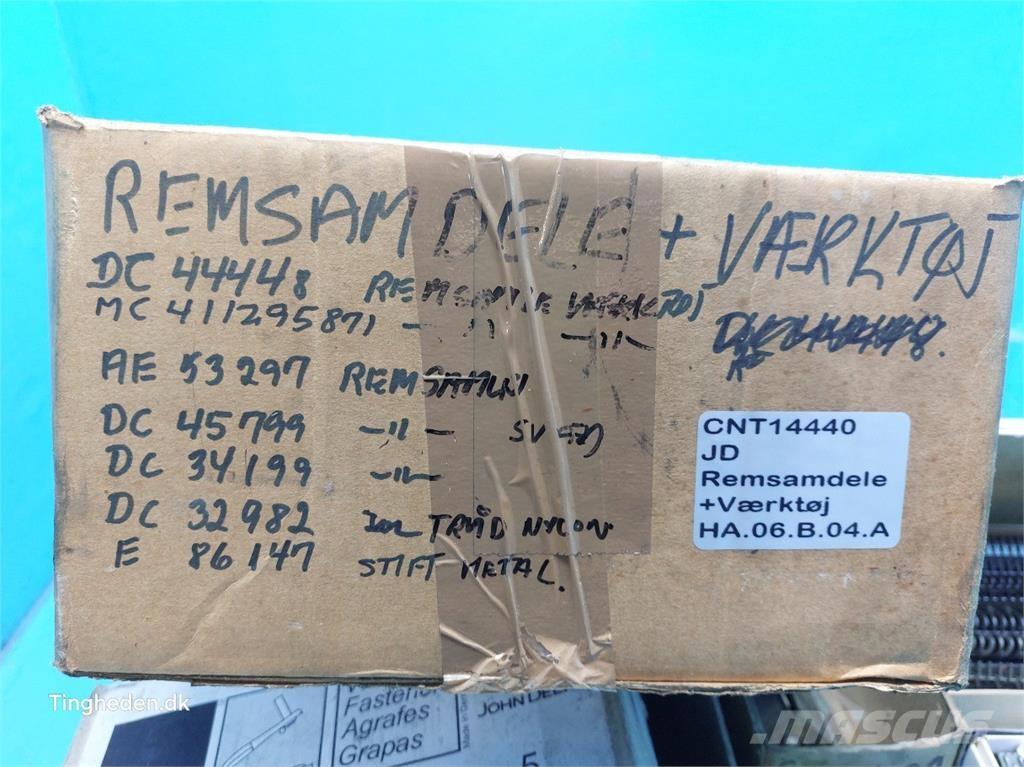 REMSAMDELE + VÆRKTØJ
DC 44448 REMSAMLE VÆRKTØJ
MC 411295871 -"- -"-
AE 53297 REMSAMLER
DC 45799 -"- SVÆR
DC 34199 -"-
DC 32982 TRÅD NYLON
E 86147 STIFT METAL.
CNT14440
JD
Remsamdele
+Værktøj
HA.06.B.04.A
Tingheden.dk
Agrafes
Grapas
Made in
JOHN DEE
5
MASCUS